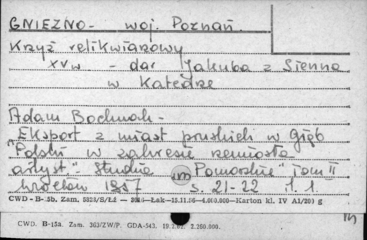 GNIEZNO - woj. Poznań.
Krzyż relikwiarzowy
XV w - dar Jakuba z Sienna
w Katedrze
Adam Bochnak -
"Eksport z miast pruskich w głąb
Polski w zakresie rzemiosła
artyst". Studia Pomorskie" tom II
Wrocław 1957 s. 21-22 i. 1
CWD - B-5b. Zam.
CWD. B-15a. Zam. 363/ZW/P. GDA-543. 2.250.000.